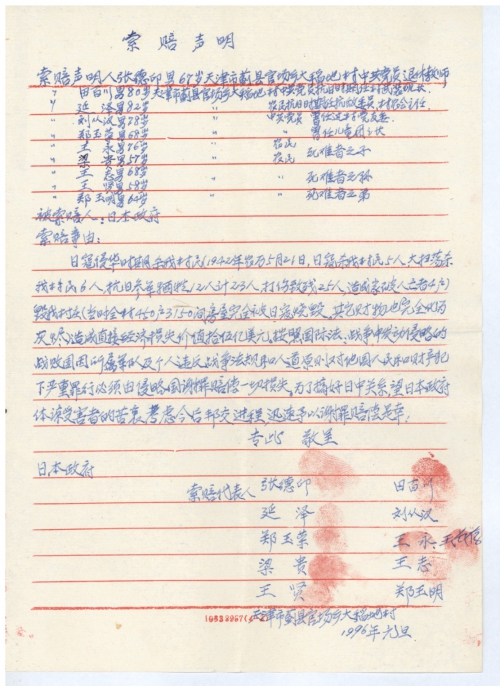 索赔声明
索赔声明人张德印男67岁天津市蓟县官场乡大稻地村中共党员退休教师
〃 田百川男80岁天津市蓟县官场乡大稻地村中共党员抗日时期任村武装班长.
〃 延 泽男82岁 〃 农民抗日时期任抗战委员,村行会主任.
〃 刘从汉男78岁 〃 中共党员 曾任过村党支委.
郑玉荣男69岁 〃 〃 曾任儿童团团长
王 永男76岁 〃 农民 死难者之子
梁 贵男57岁 〃 农民 〃
王 志男68岁 〃 死难者之孙
王 贤男59岁 〃 〃
郑玉明男64岁 〃 死难者之弟
被索赔人:日本政府
索赔事由:
日寇侵华时期杀我村民(1942年农历5月21日,日寇杀我村民5人,大扫荡杀
我村民6人,抗日参军牺牲12人)计23人,打伤致残25人,造成家破人亡者4户,
毁我村庄(当时全村450户)3150间房屋完全被日寇烧毁,其它财物也完全的
灰尽,造成直接经济损失价值拾伍亿美元,按照国际法,战争中发动侵略的
战败国因所属军队及个人违反战争法规和人道原则对他国人民和财产犯
下严重罪行必须由侵略国谢罪赔偿一切损失,为了搞好日中关系,望日本政府
体谅受害者的苦衷,考虑今后邦交进程,迅速予以谢罪赔偿是幸.
专此 敬呈
日本政府
索赔代表人 张德印 田百川
延 泽 刘从汉
郑玉荣 王 永
梁 贵 王 志
王 贤 郑玉明
天津市蓟县官场乡大稻地村
1996年元旦